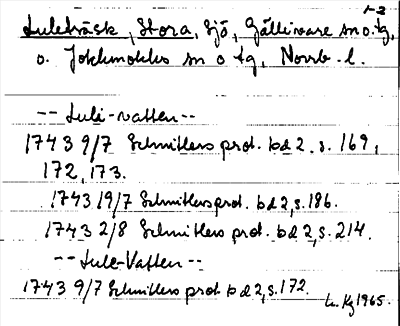 1-2
Luleträsk, Stora, sjö, Gällivare sn o. tg,
o. Jokkmokks sn o tg, Norrb. l.
-- Luli-vatten --
1743 9/7 Schnitlers prot. bd 2, s. 169,
172, 173.
1743 19/7 Schnitlers prot. bd 2, s. 186.
1743 2/8 Schnitlers prot. bd 2, s. 214.
-- Lule-Vatten --
1743 9/7 Schnitlers prot bd 2, s. 172.
1965.